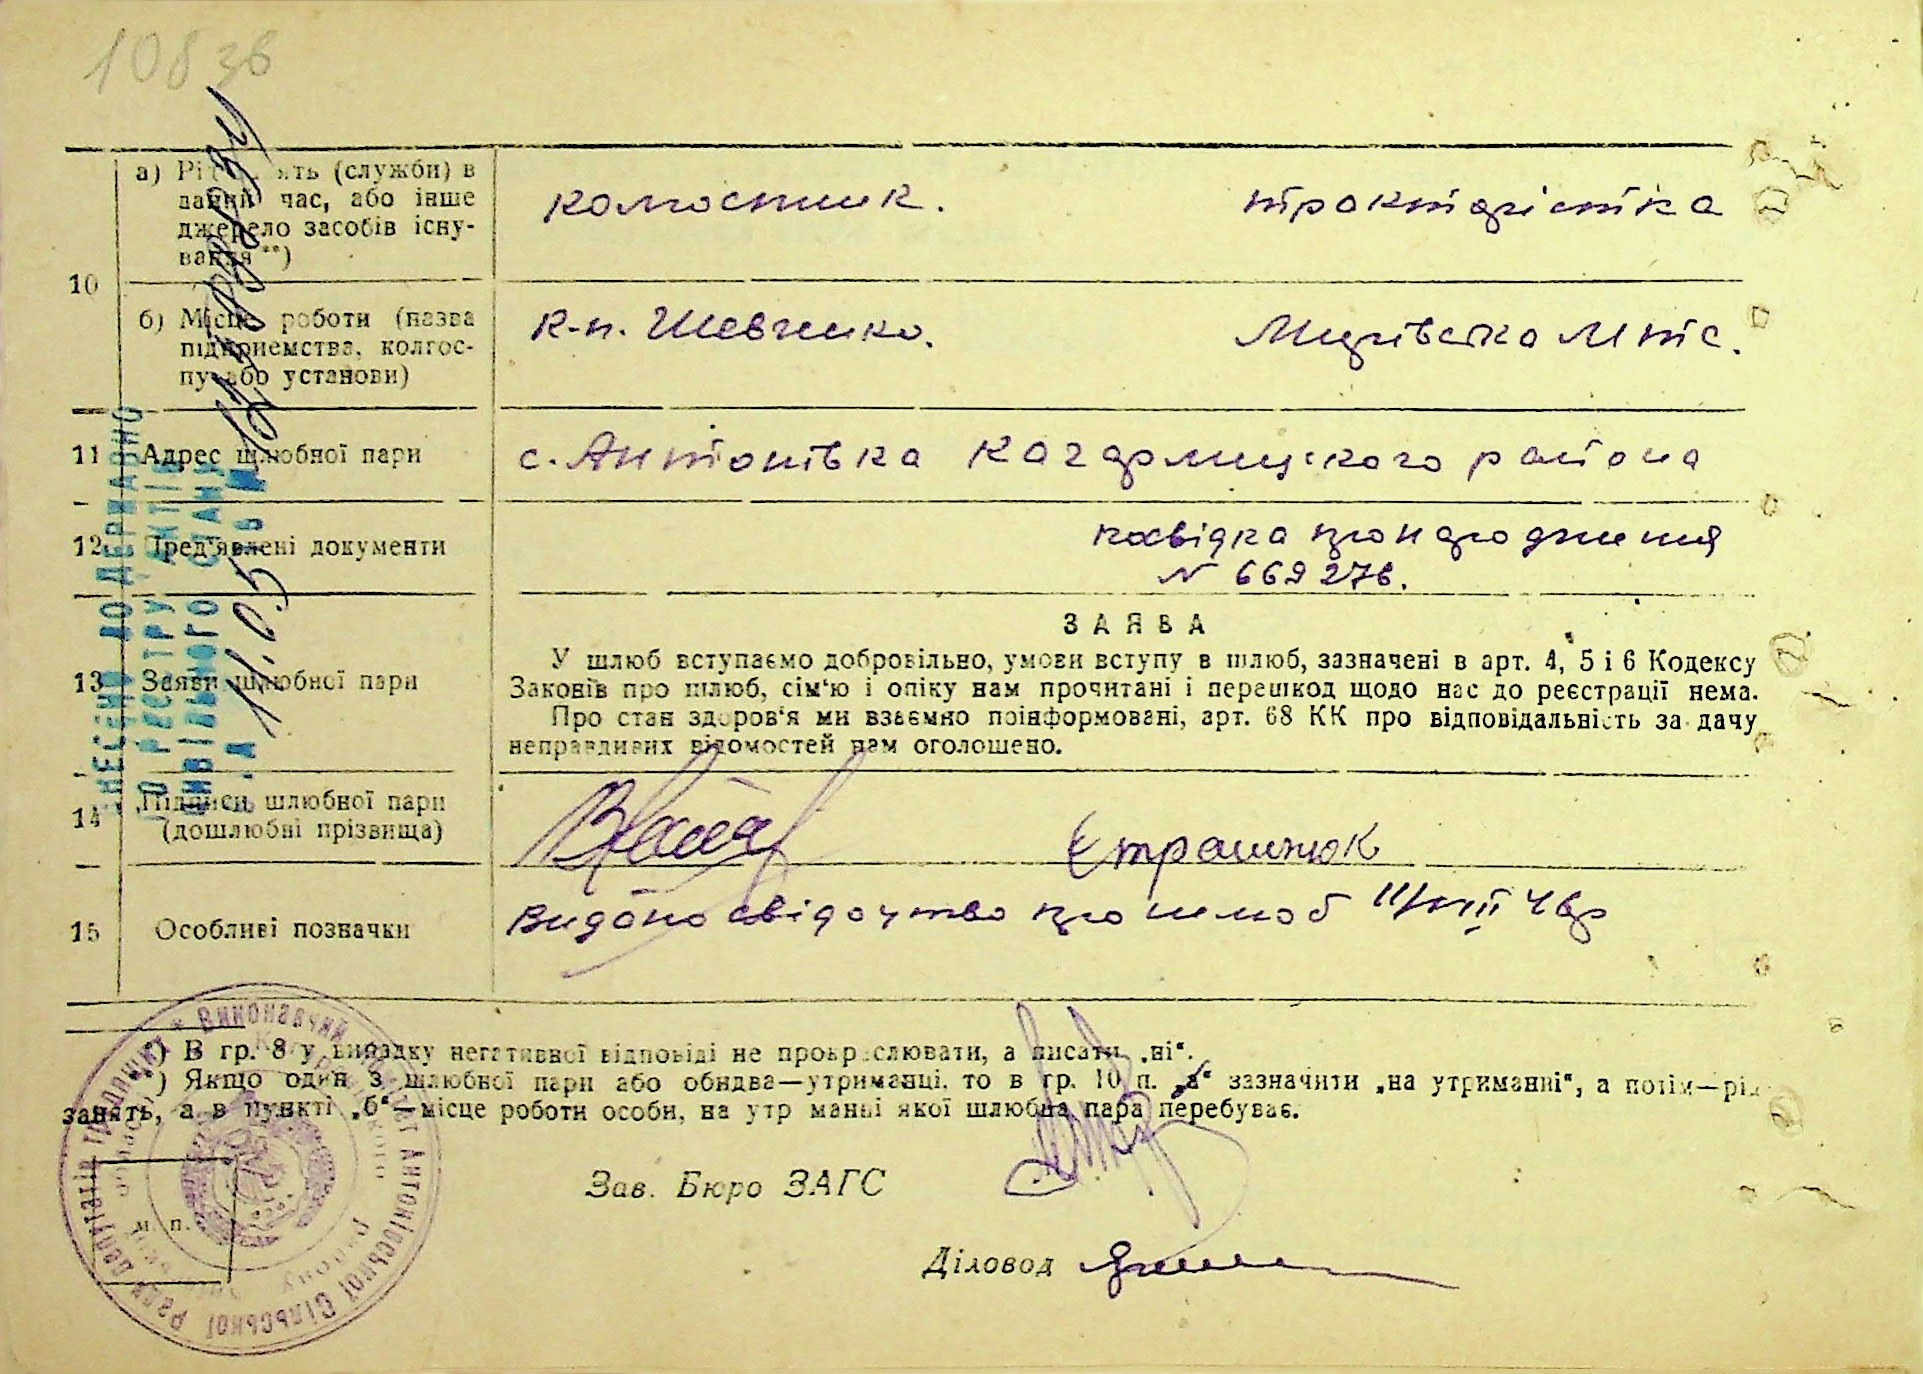 108 зв
а) Рі ять (служби) в
даний час, або інше
джерело засобів існу-
вання**)
колгоспник.
трактарістка
10
б) Місце роботи (назва
підприємства, колгос-
пу або установи)
к-п. Шевченко.
М.т.с.
11
Адрес шлюбної пари
с. Антонівка Кагарлицького района
12
Пред'явлені документи
посвідка про народження
№ 669276.
13
Заяви шлюбної пари
ЗАЯВА
У шлюб вступаємо добровільно, умови вступу в шлюб, зазначені в арт. 4, 5 і 6 Кодексу
Законів про шлюб, сім'ю і опіку нам прочитані і перешкод щодо нас до реєстрації нема.
Про стан здоров'я ми взаємно поінформовані, арт. 68 КК про відповідальність за дачу
неправдивих відомостей нам оголошено.
14
Підписи шлюбної пари
(дошлюбні прізвища)
15
Особливі позначки
Видано свідоцтво про шлюб
*) В гр. 8 у випадку негативної відповіді не прокреслювати, а писати „ні“.
**) Якщо один з шлюбної пари або обидва—утриманці, то в гр. 10 п. „а“ зазначити „на утриманні“, а потім—рід
занять, а в пункті „б“—місце роботи особи, на утриманні якої шлюбна пара перебуває.
Зав. Бюро ЗАГС
м. п.
Діловод
ВНЕСЕНО ДО ДЕРЖАВНО
ГО РЕЄСТРУ АКТІВ
ЦИВІЛЬНОГО СТАНУ
Виконавчий комітет Антонівської Сільської Ради депутатів трудящих